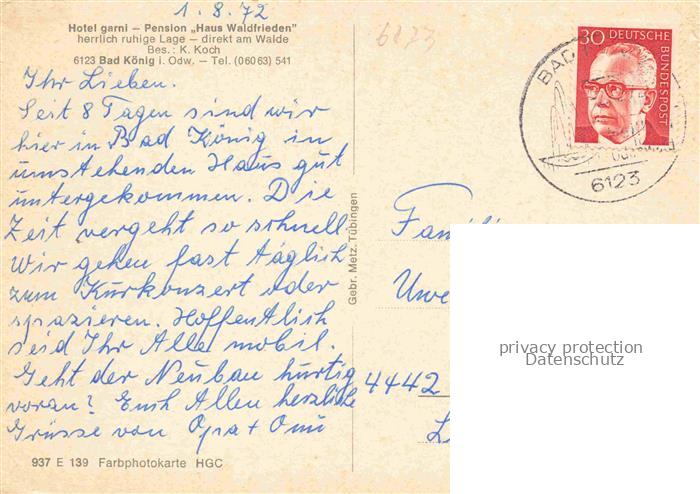 1.8.72
Hotel garni – Pension „Haus Waldfrieden"
herrlich ruhige Lage – direkt am Walde
Bes.: K. Koch
6123 Bad König i. Odw. – Tel. (06063) 541
6123
Ihr Lieben.
Seit 8 Tagen sind wir
hier in Bad König in
umstehenden Haus gut
untergekommen. Die
Zeit vergeht so schnell.
Wir gehen fast täglich
zum Kurkonzert oder
spazieren. Hoffentlich
seid Ihr Alle mobil.
Geht der Neubau hurtig
voran? Euch Allen herzliche
Grüsse von Opa + Omi
937 E 139 Farbphotokarte HGC
Gebr. Metz, Tübingen
30 DEUTSCHE
BUNDESPOST
BAD
6123
Familie
Uwe
4442
privacy protection
Datenschutz